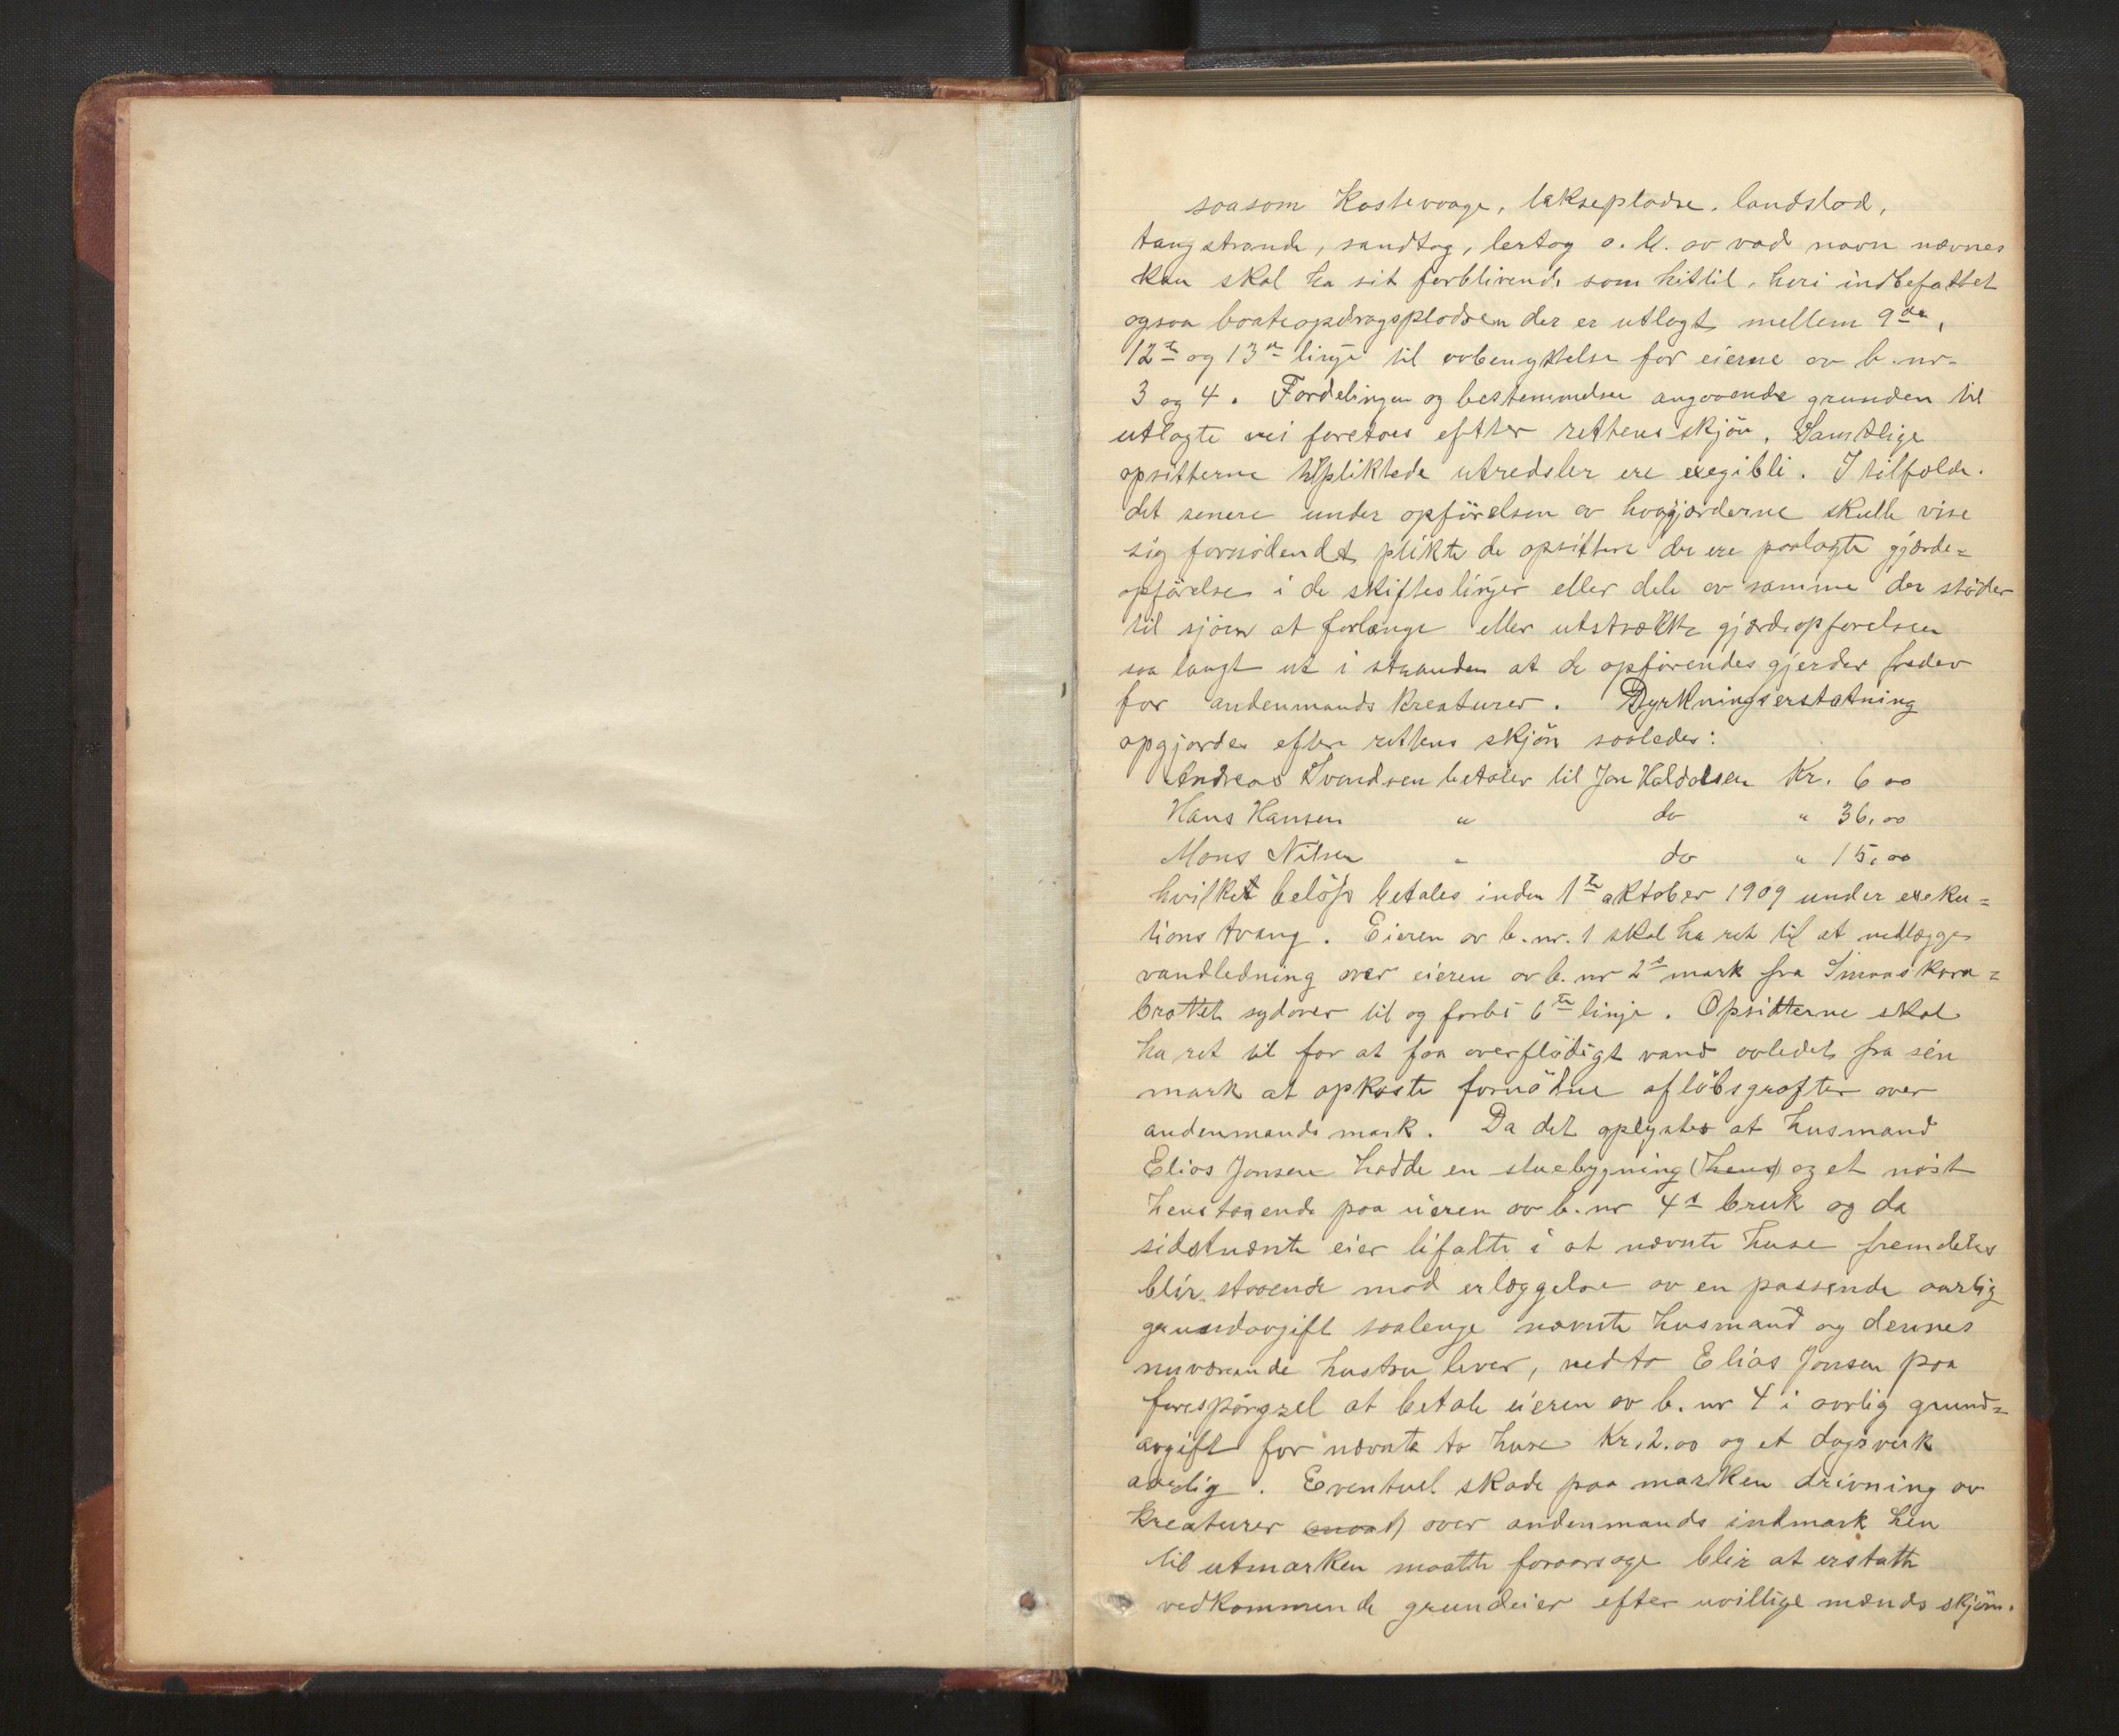 saasom Kastevaage, laksepladse, landslod,
tangstrande, sandtag, lertag o. l. av vad navn nævnes
kan skal ha sit forblivende som hittil, heri indbefattet
ogsaa baateopdragspladsen der er utlagt mellem 9de,
12te og 13de linje til avbenyttelse for eierne av b.nr.
3 og 4. Fordelingen og bestemmelse angaaende grunden til
utlagte vei foretaes efter rettens skjön. Samtlige
opsitterne tilpliktede utredsler ere exegible. I tilfælde
det senere under opförelsen av havgjærderne skulle vise
sig fornödendet plikte de opsittere der ere paalagte gjærde=
opförelse i de skifteslinjer eller dele av samme der stöder
til sjöen at forlænge eller utstrække gjærdeopförelsen
saa langt ut i stranden at de opförendes gjerder freder
for andenmands kreaturer. Dyrkningserstatning
opgjordes efter rettens skjön saaledes:
Andreas Svendsen betaler til Jan Haldolsen Kr. 6 00
Hans Hansen " do " 36,00
Mons Nilsen " do " 15,00
hvilket belöp betales inden 1te oktober 1909 under exeku=
tions tvang. Eieren av b.nr. 1 skal ha ret til at nedlægge
vandledning over eieren av b.nr 2s mark fra Smaaskora=
brattet sydover til og forbi 6te linje. Opsitterne skal
ha ret til for at faa overflödigt vand avledet fra sin
mark at opkaste fornödne aflöbsgrøfter over
andenmands mark. Da det oplystes at husmand
Elias Jonsen hadde en stuebygning (hens) og et nöst
henstaaende paa eieren av b.nr 4s bruk og da
sidstnævnte eier bifaldte i at nævnte huse fremdeles
blir staaende mod erlæggelse av en passende aarlig
grundavgift saalenge nævnte husmand og dennes
nuværende hustru lever, vedto Elias Jonsen paa
forespörgsel at betale eieren av b.nr 4 i aarlig grund=
avgift for nævnte to huse Kr. 2.00 og et dagsverk
aarlig. Eventuel skade paa marken drivning av
kreaturer over andenmands indmark hen
til utmarken maatte foraarsage blir at erstatte
vedkommende grundeier efter uvillige mænds skjön.